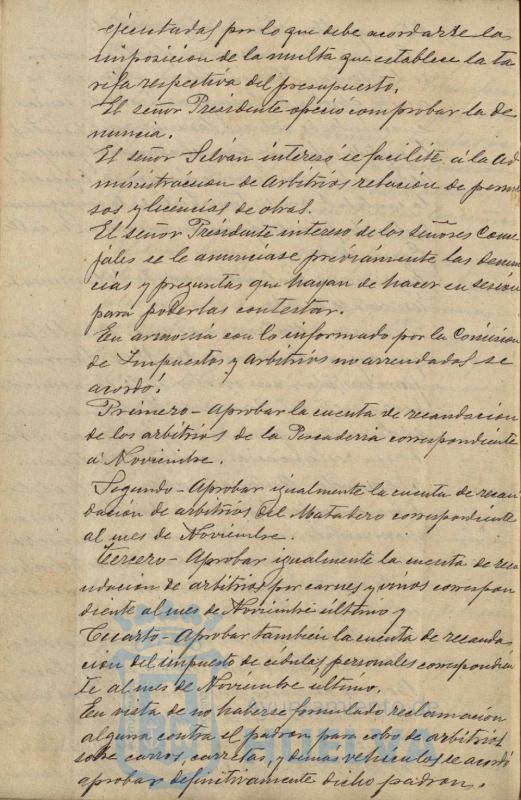 ejecutadas por lo que debe acordarse la
imposicion de la multa que establece la ta
rifa respectiva del presupuesto.
El señor Presidente ofreció comprobar la de
nuncia.
El señor Selván interesó se facilite á la Ad
ministracion de Arbitrios relacion de permi
sos y licencias de obras.
El señor Presidente interesó de los señores Conce
jales se le anunciase previamente las denun
cias y preguntas que hayan de hacer en sesión
para poderlas contestar.
En armonia con lo informado por la Comision
de Impuestos y Arbitrios no arrendados se
acordó:
Primero - Aprobar la cuenta de recaudacion
de los arbitrios de la Pescaderia correspondiente
á Noviembre.
Segundo - Aprobar igualmente la cuenta de recau
dación de arbitrios del Matadero correspondiente
al mes de Noviembre.
Tercero - Aprobar igualmente la cuenta de reca
udacion de arbitrios por carnes y vinos correspon
diente al mes de Noviembre último y
Cuarto - Aprobar también la cuenta de recauda
cion del impuesto de cédulas personales correspondien
te al mes de Noviembre último.
En vista de no haberse formulado reclamación
alguna contra el padron para cobro de arbitrios
sobre carros, carretas, y demas vehiculos se acordó
aprobar definitivamente dicho padron.
HUELVA